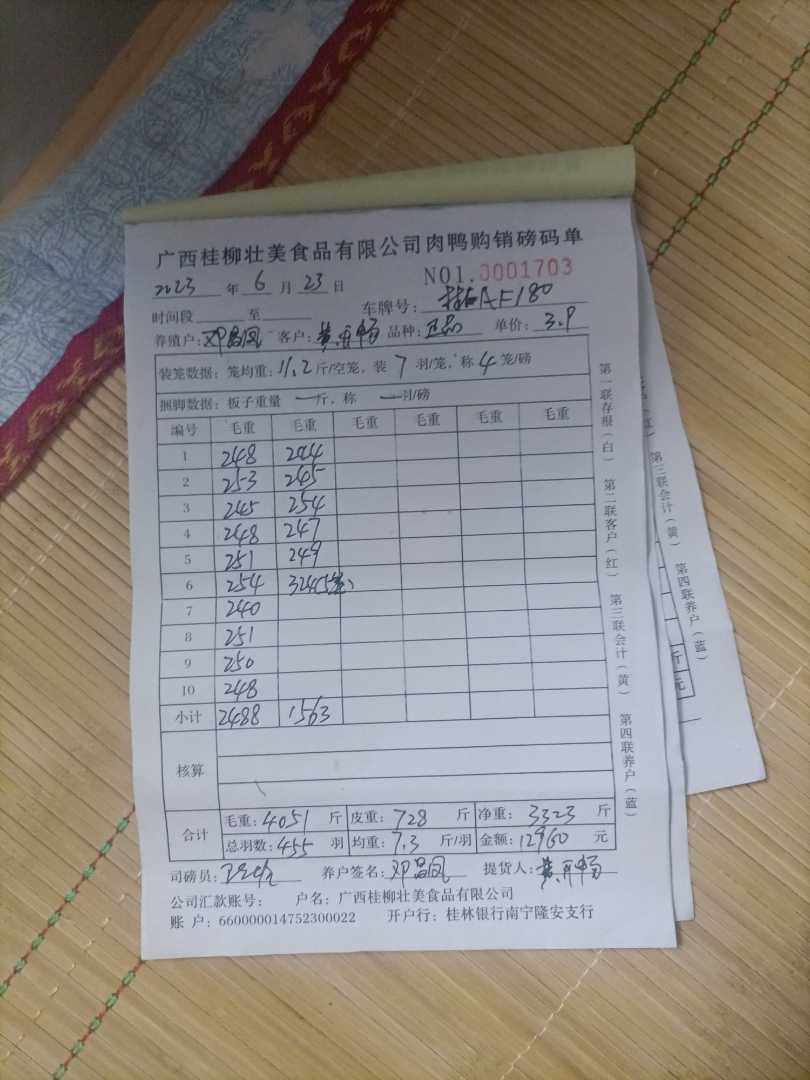 广西桂柳壮美食品有限公司肉鸭购销磅码单
2023 年 6 月 23 日 NO1.0001703
时间段 至 车牌号: 桂AF180
养殖户: 邓昌凤 客户: 黄 畅 品种: 正品 单价: 3.9
装笼数据: 笼均重: 11.2 斤/空笼, 装 7 羽/笼, 称 4 笼/磅
捆脚数据: 板子重量 一 斤, 称 一 羽/磅
编号 毛重 毛重 毛重 毛重 毛重 毛重
1 248 244
2 253 245
3 245 254
4 248 247
5 251 249
6 254 324(5笼)
7 240
8 251
9 250
10 248
小计 2488 1563
核算
合计 毛重: 4051 斤 皮重: 728 斤 净重: 3323 斤
总羽数: 455 羽 均重: 7.3 斤/羽 金额: 12960 元
司磅员: 养户签名: 邓昌凤 提货人: 黄 畅
公司汇款账号: 户名: 广西桂柳壮美食品有限公司
账 户: 660000014752300022 开户行: 桂林银行南宁隆安支行
第一联存根(白) 第二联客户(红) 第三联会计(黄) 第四联养户(蓝)
第三联会计(黄) 第四联养户(蓝)
斤
元